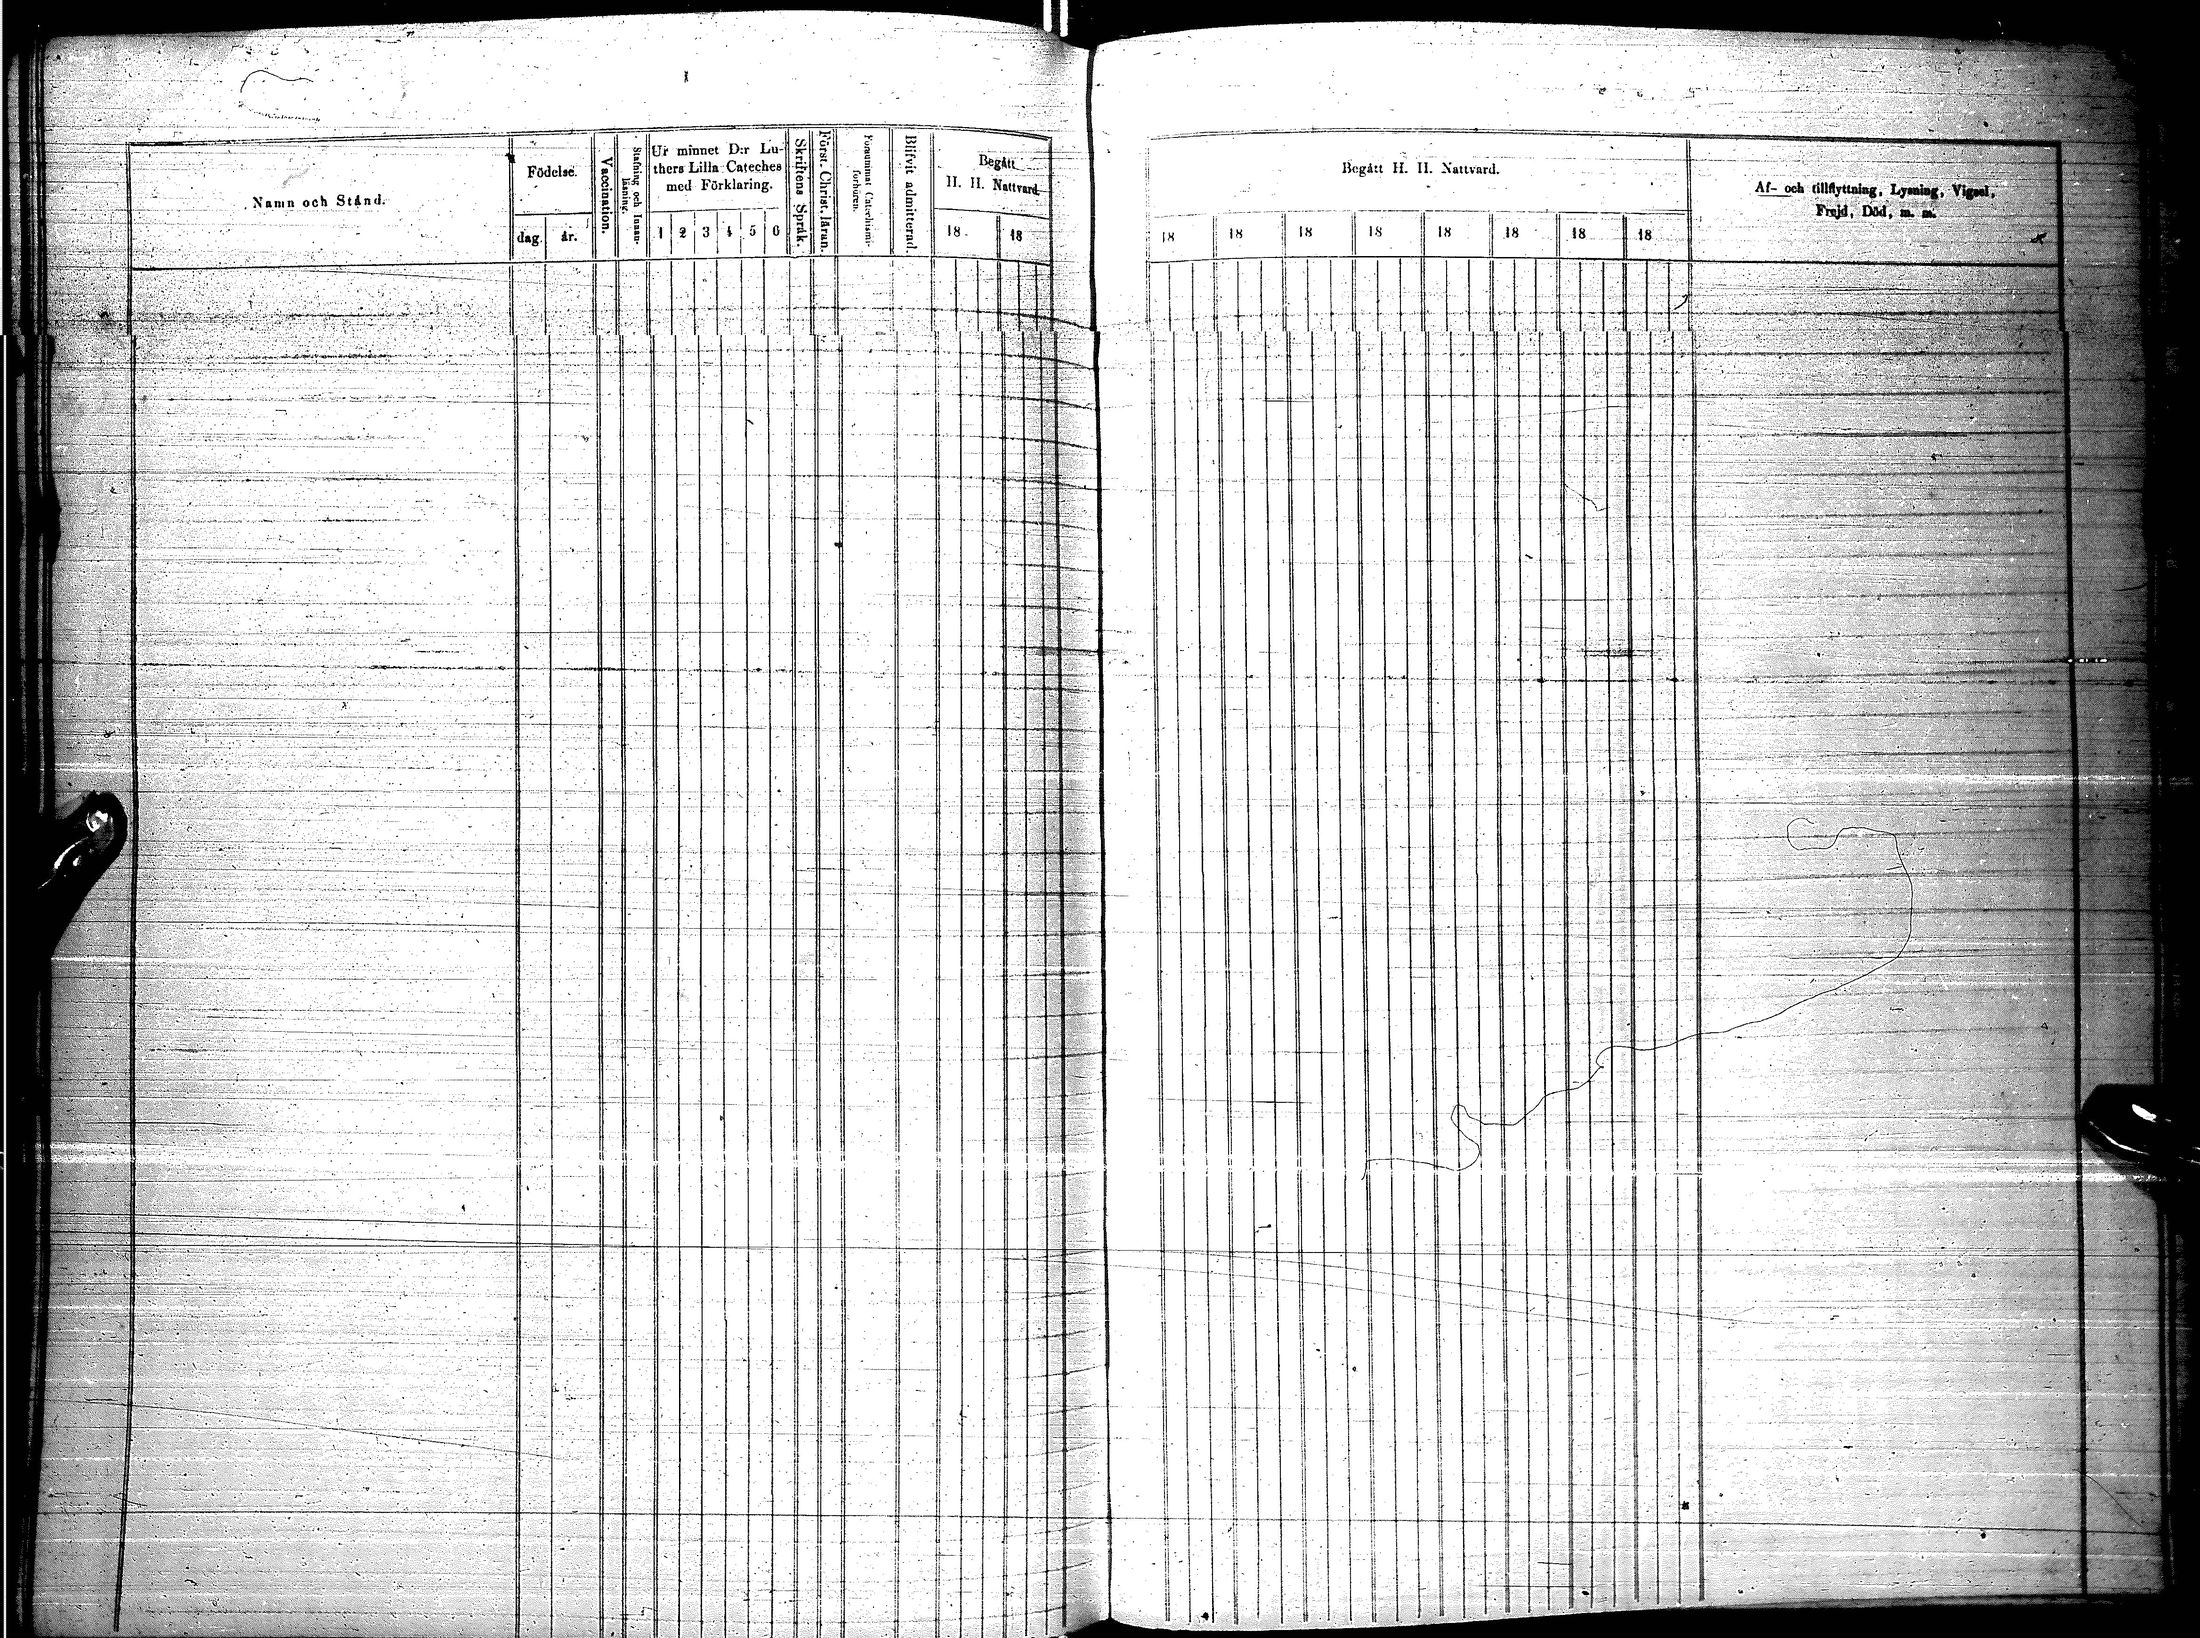 Namn och Stånd.
Födelse.
dag.
år.
Vaccination.
Stafning och Innan-
läsning.
Ur minnet D:r Lu-
thers Lilla Cateches
med Förklaring.
1 2 3 4 5 6
Skriftens Språk.
Först. Christ. läran.
Försummat Catechismi-
förhören.
Blifvit admitterad.
Begått
H. H. Nattvard.
18
18
Begått H. H. Nattvard.
18 18 18 18 18 18 18 18
Af- och tillflyttning, Lysning, Vigsel,
Frejd, Död, m. m.